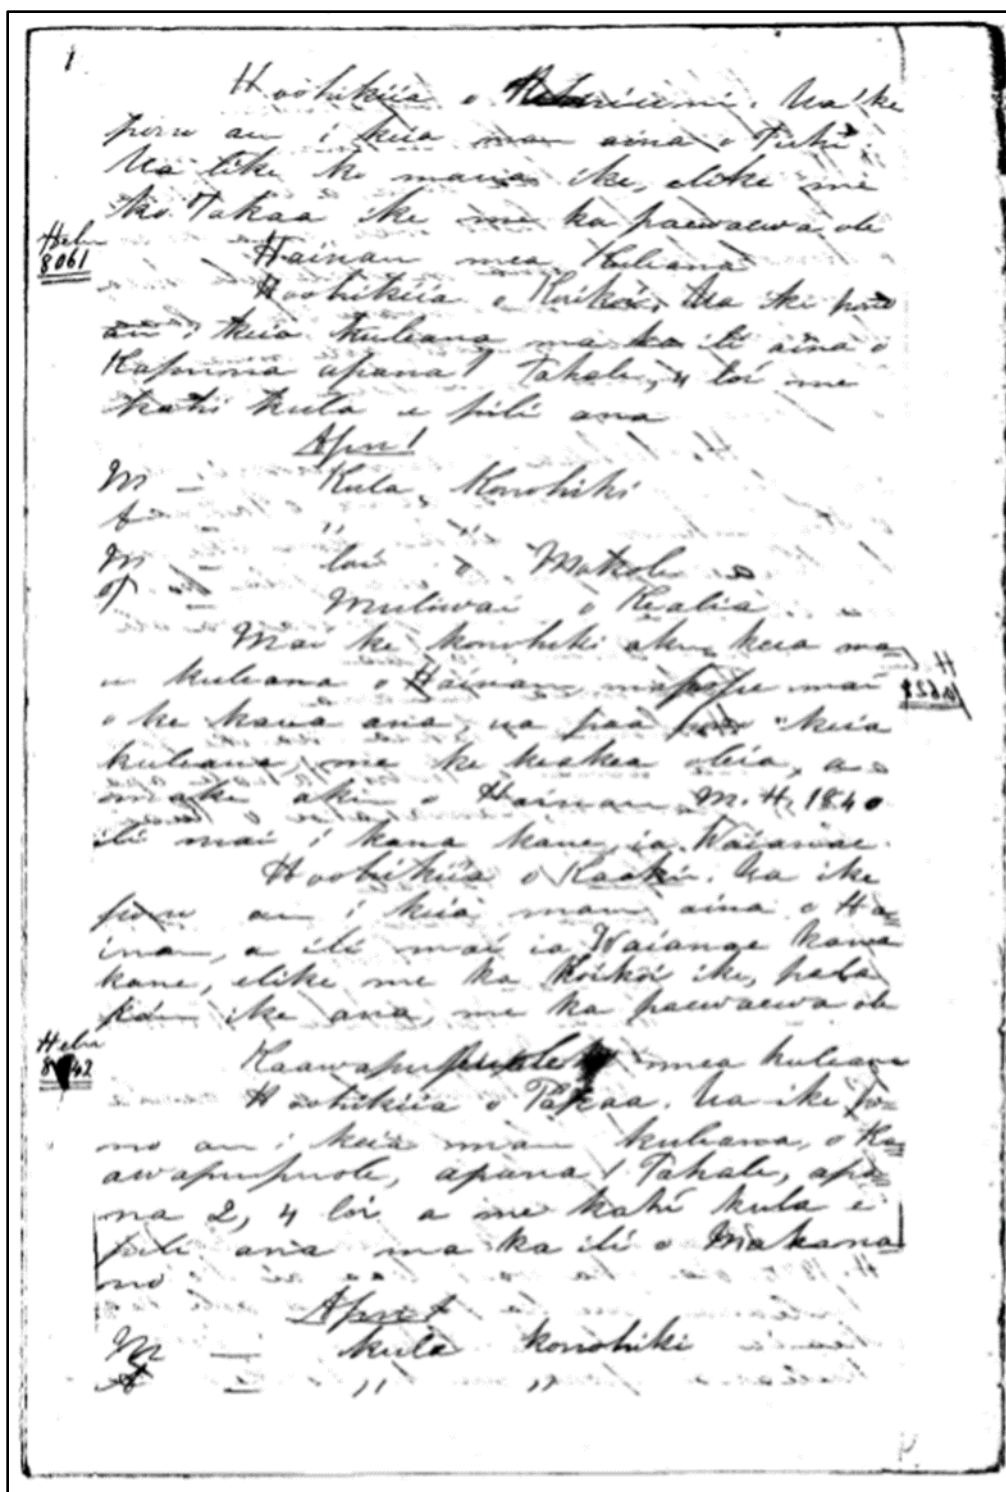 1
Hoohikiia o . Ua ike
pono au i keia mau aina o Puhi.
Ua like ko maua ike, elike me
ko Takaa ike me ka paewaewa ole
Helu
8061
Hainau mea kuleana
Hoohikiia o Koikoi. Ua ike pono
au i keia kuleana ma ka ili aina o
Kapuna apana 1 Pahale, 4 loi me
kahi kula e pili ana
Apn 1
M — Kula Konohiki
A — " "
M — loi o Makole
— Muliwai o Kealia
Mai ke konohiki aku keia ma
u kuleana o Hainau, mai
o ke kaua ana, ua paa pono keia
kuleana, me ke keakea oleia, a
make aku o Hainau M. H. 1840
ili mai i kana kane, ia Waianae.
Hoohikiia o Kaakau. Ua ike
pono au i keia mau aina o Ha-
inau, a ili mai ia Waianae kana
kane, elike me ka Koikoi ike, pela
ko'u ike ana, me ka paewaewa ole
Helu
8 42
Kaawapupuole mea kuleana
Hoohikiia o Takaa. Ua ike po-
no au i keia mau kuleana, o Ka-
awapupuole, apana 1 Pahale, apa-
na 2, 4 loi a me kahi kula e
pili ana ma ka ili o Makana-
no
Apn 1
M — kula konohiki
A — " "